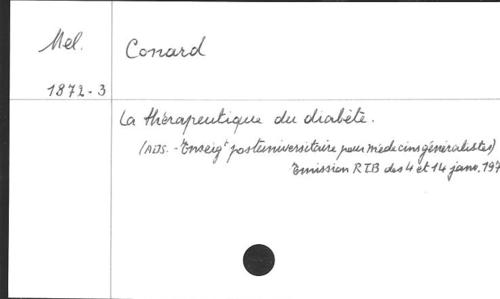 Mel. Conard
1872-3
La thérapeutique du diabète.
(ADS. - Enseigt postuniversitaire pour médecins généralistes)
Emission RTB des 4 et 14 janv. 197